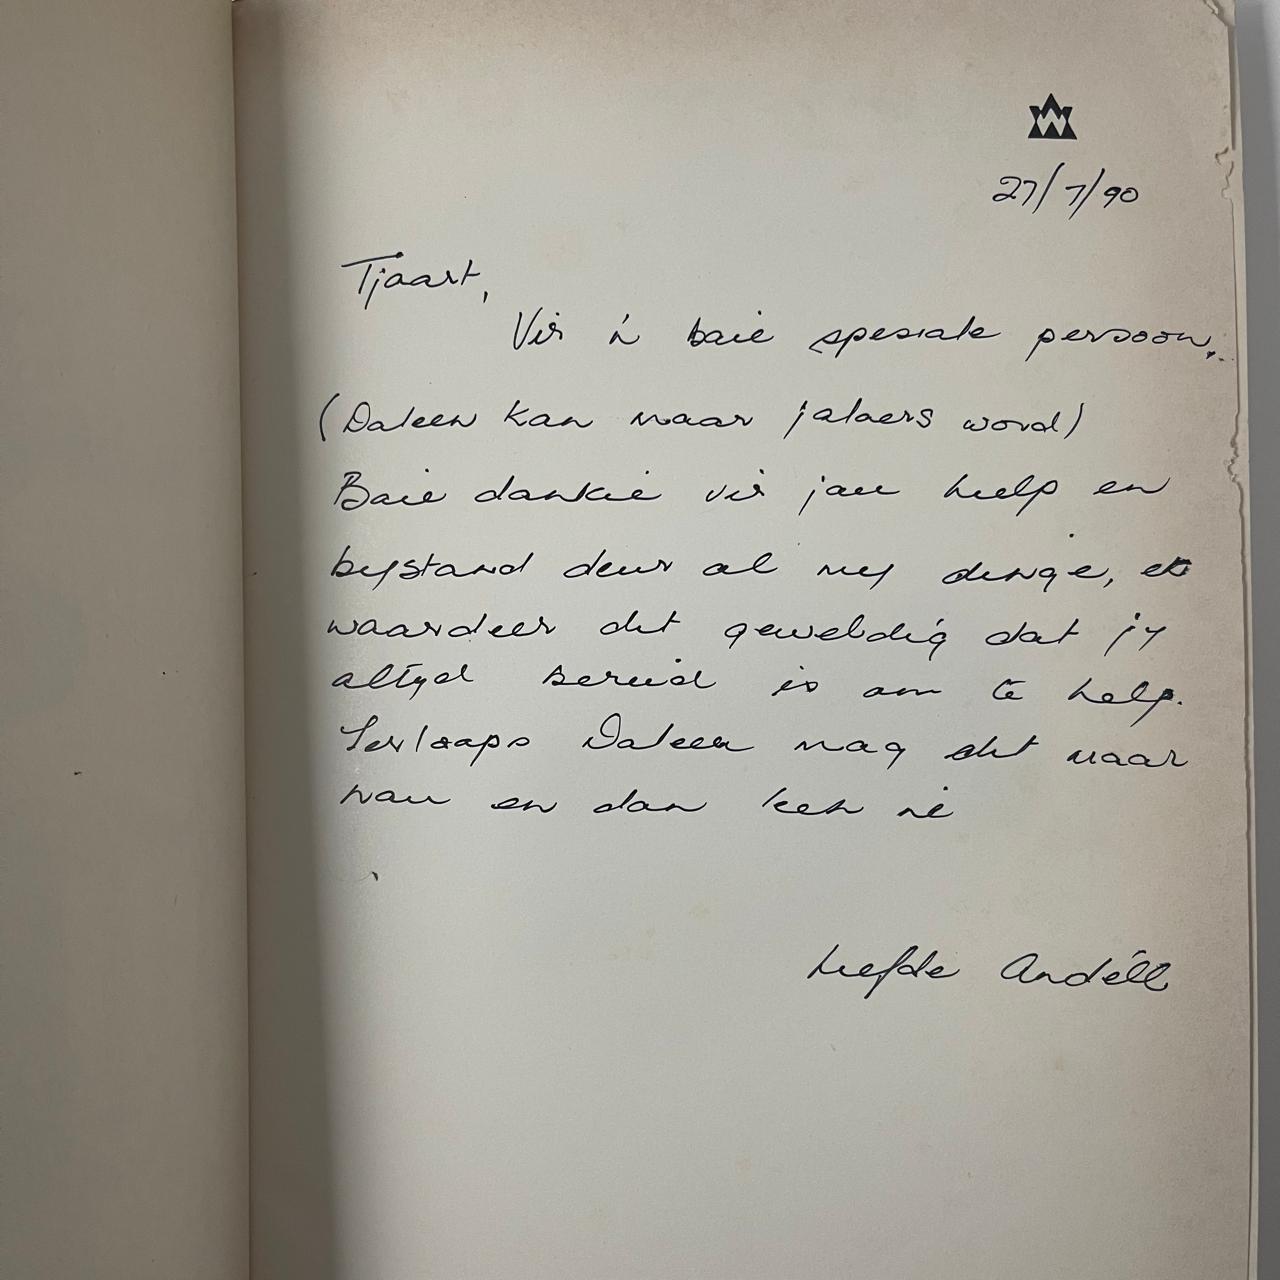 27/7/90
Tjaart,
Vir 'n baie spesiale persoon.
(Daleen kan maar jalaers word)
Baie dankie vir jou hulp en
bystand deur al my dinge, ek
waardeer dit geweldig dat jy
altyd bereid is om te help.
Terloops Daleen mag dit maar
nou en dan leen nè
Liefde Andéll